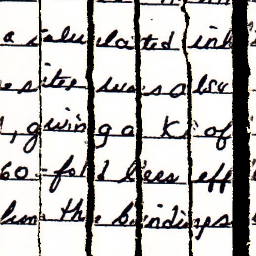 a calculated inh
e sites was also
, giving a Ki of
60-fold less eff
the bindings